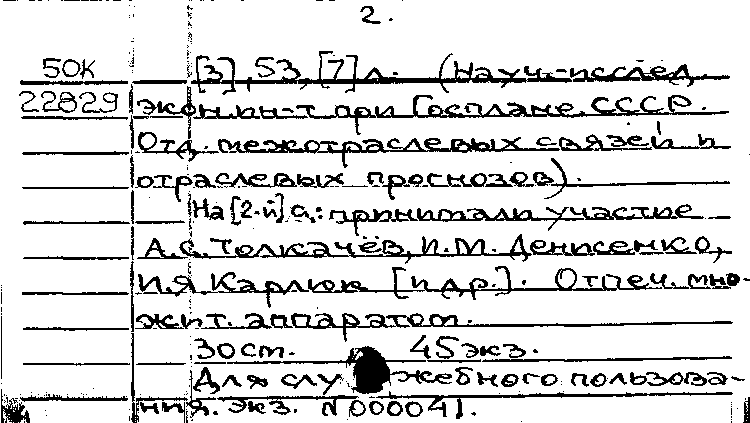 2.
50К [3], 53, [7] л. (Науч.-исслед.
22829 экон. ин-т при Госплане СССР.
Отд. межотраслевых связей и
отраслевых прогнозов).
На [2-й] с.: принимали участие
А.С. Толкачёв, И.М. Денисенко,
И.Я. Карлюк [и др.]. Отпеч. мно-
жит. аппаратом.
30 см. 45 экз.
Для служебного пользова-
ния. экз. N 000041.